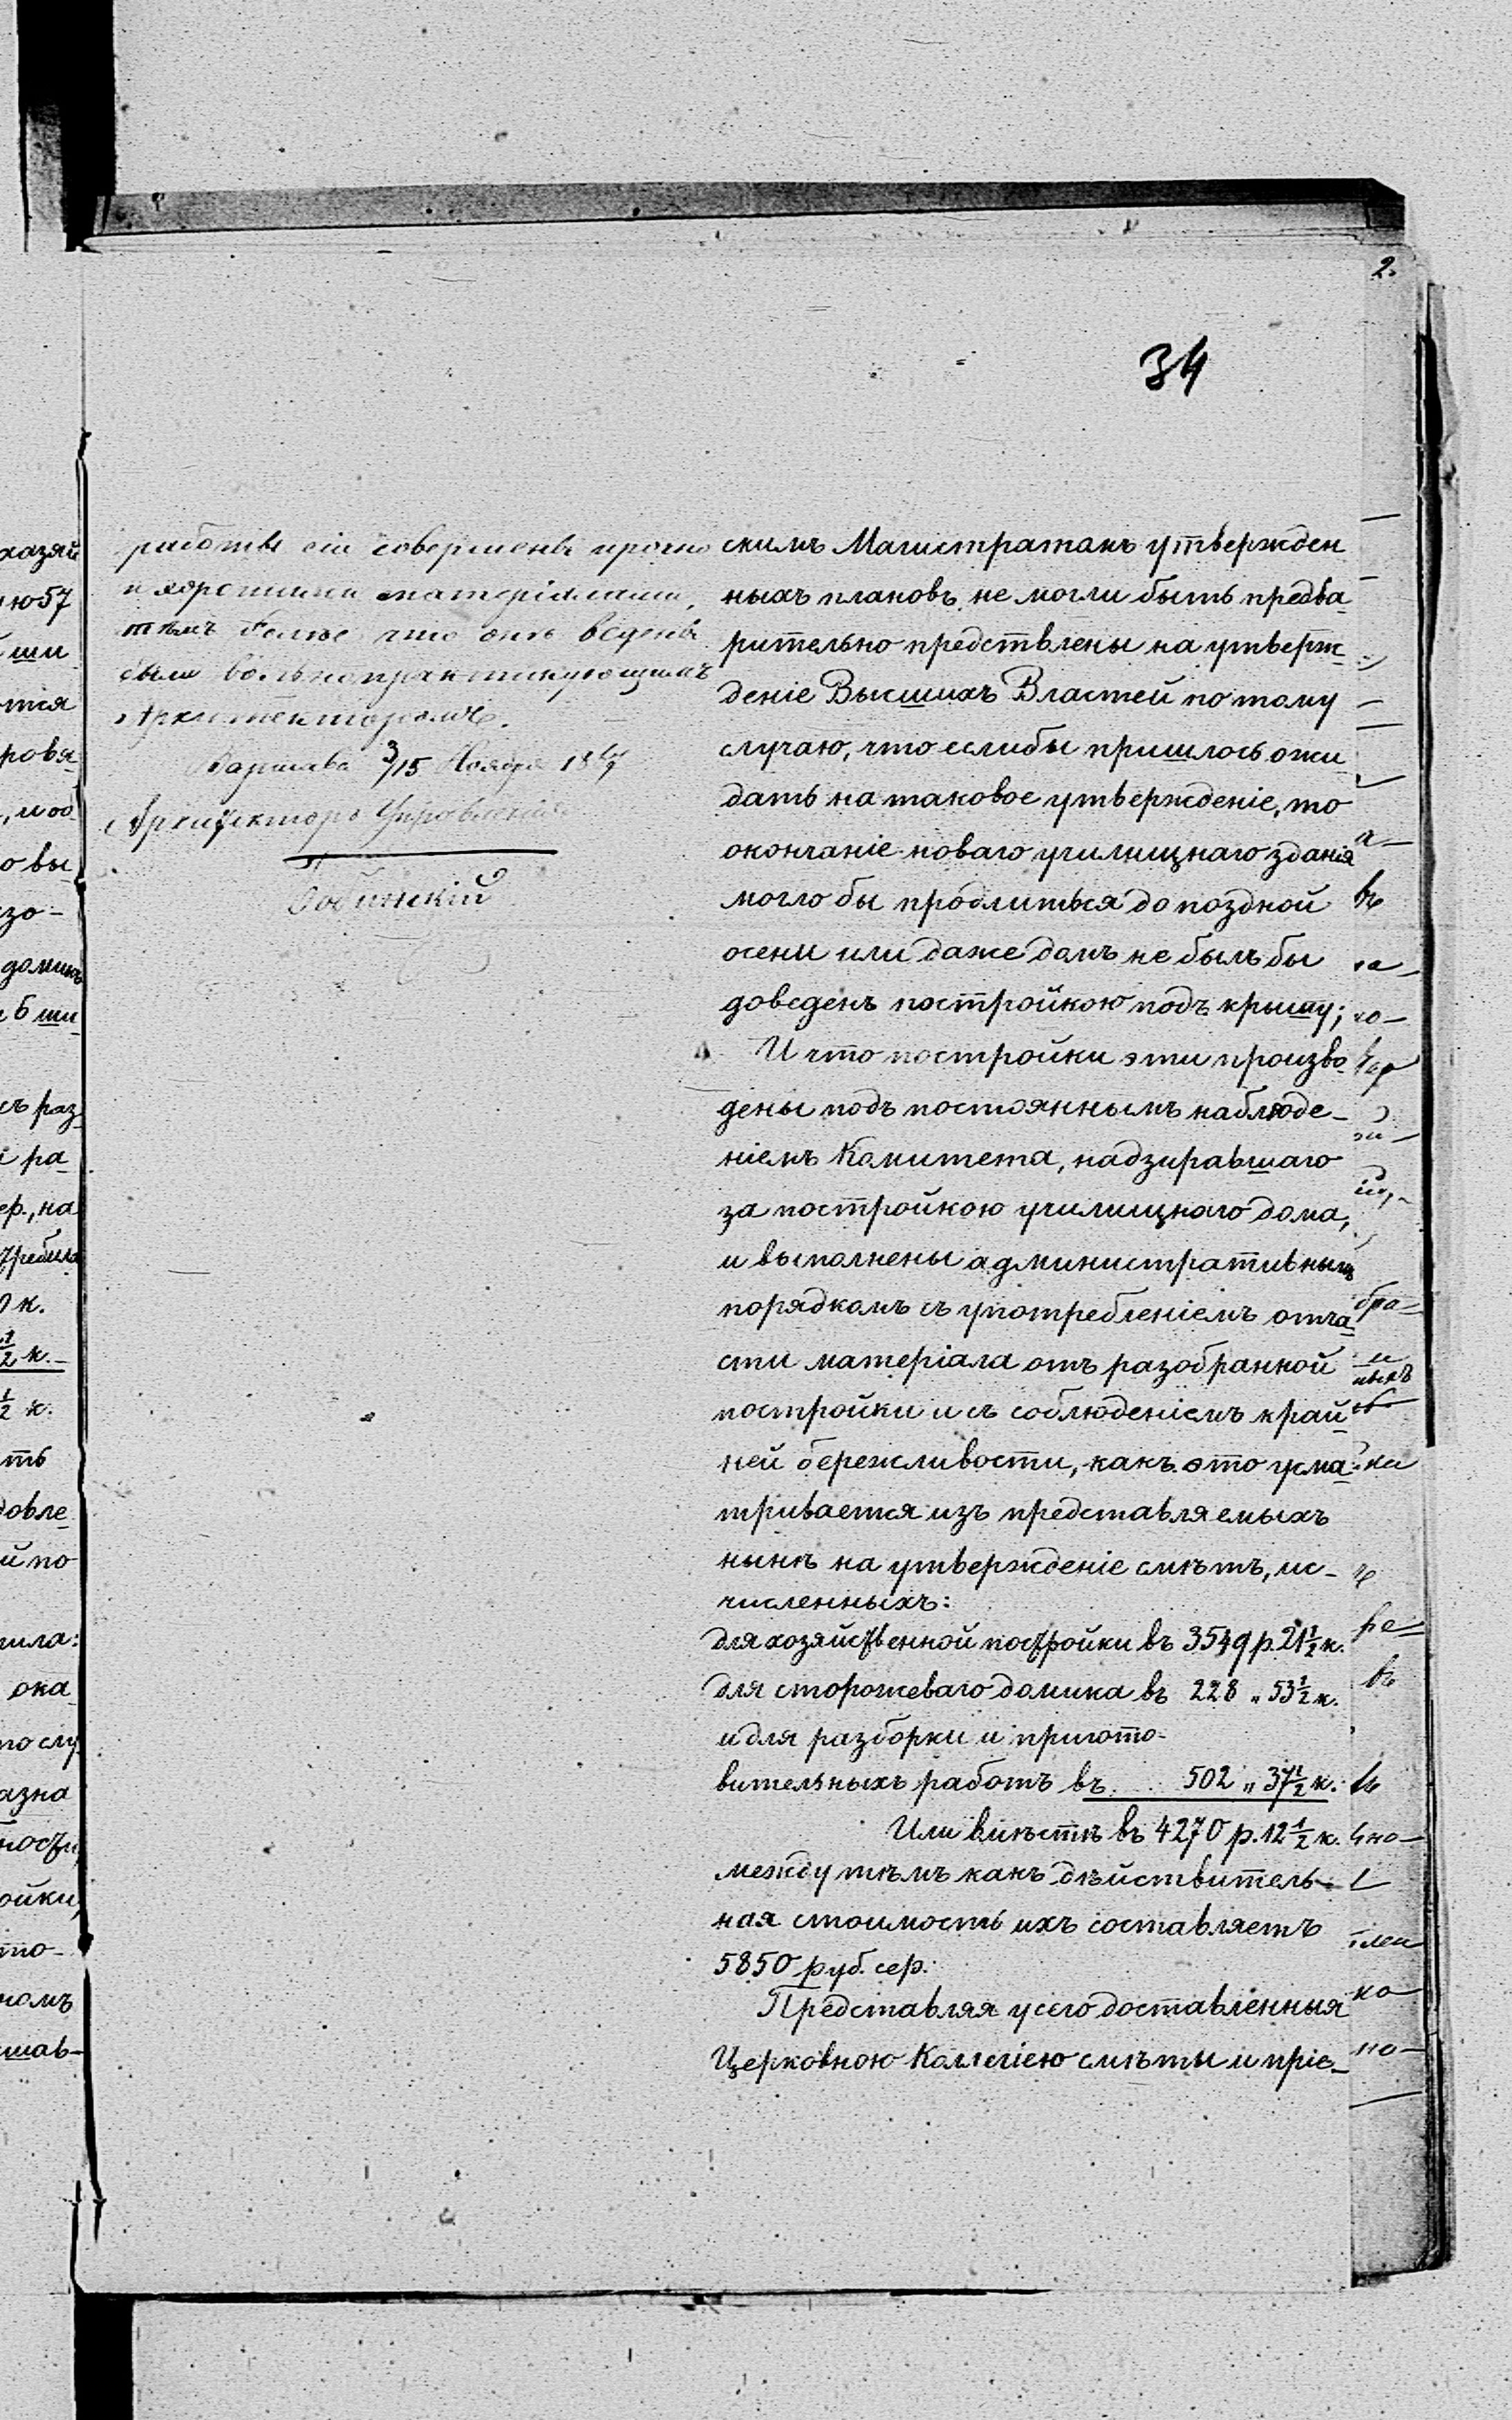 2.
34
работы сіи совершены прочно
и хорошими матеріалами,
тѣмъ болѣе что онѣ ведены
были вольнопрактикующимъ
Архитекторомъ.
Варшава 3/15 Ноября
Архитекторъ Управленія
скимъ Магистратомъ утвержден
ныхъ плановъ, не могли быть предва
рительно предствлены на утверж-
деніе Высшихъ Властей по тому
случаю, что еслибы пришлось ожи
дать на таковое утвержденіе, то
окончаніе новаго училищнаго зданія
могло бы продлиться до поздной
осени или даже домъ не былъ бы
доведенъ постройкою подъ крышу;
И что постройки эти произво
дены подъ постояннымъ наблюде-
ніемъ Комитета, надзиравшаго
за постройкою училищнаго дома,
и выполнены административнымъ
порядкомъ съ употребленіемъ отча
сти матеріала отъ разобранной
постройки и съ соблюденіемъ край
ней бережливости, какъ это усма
тривается изъ представляемыхъ
нынѣ на утвержденіе смѣтъ, ис-
численныхъ:
для хозяйственной постройки въ 3549 р. 21 1/2 к.
для сторожеваго домика въ 228 „ 53 1/2 к.
и для разборки и пригото-
вительныхъ работъ въ 502 „ 37 1/2 к.
Или вмѣстѣ въ 4270 р. 12 1/2 к.
между тѣмъ какъ дѣйствитель-
ная стоимость ихъ составляетъ
5850 руб. сер.
Представляя у сего доставленныя
Церковною Коллегіею смѣты и пріе-